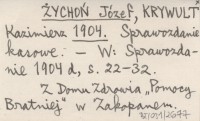 ŻYCHOŃ Józef, KRYWULT
Kazimierz 1904. Sprawozdanie
kasowe. – W: Sprawozda-
nie 1904 d, s. 22-32.
Z Domu Zdrowia „Pomocy
Bratniej" w Zakopanem.